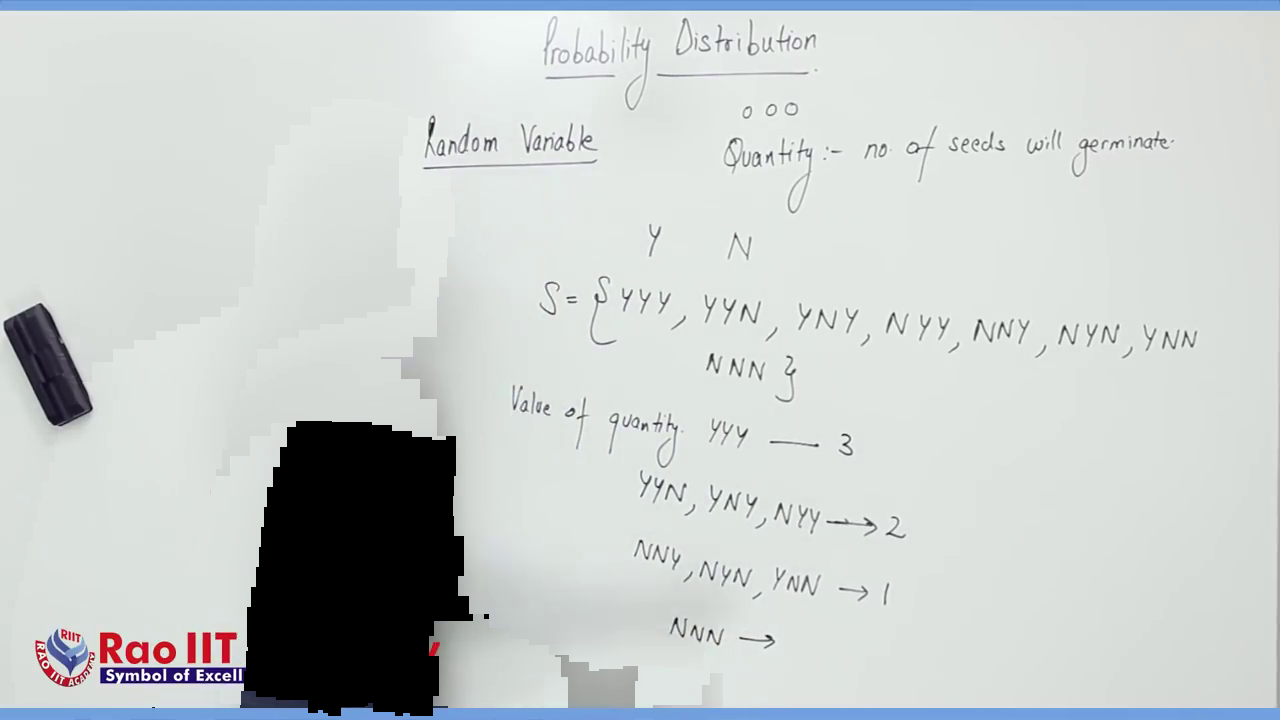 Probability Distribution
Random Variable
Quantity :- no. of seeds will germinate.
Y N
S = { YYY, YYN, YNY, NYY, NNY, NYN, YNN
NNN }
Value of quantity. YYY — 3
YYN, YNY, NYY → 2
NNY, NYN, YNN → 1
NNN →
RIIT
RAO IIT ACADEMY
Rao IIT
Symbol of Excell